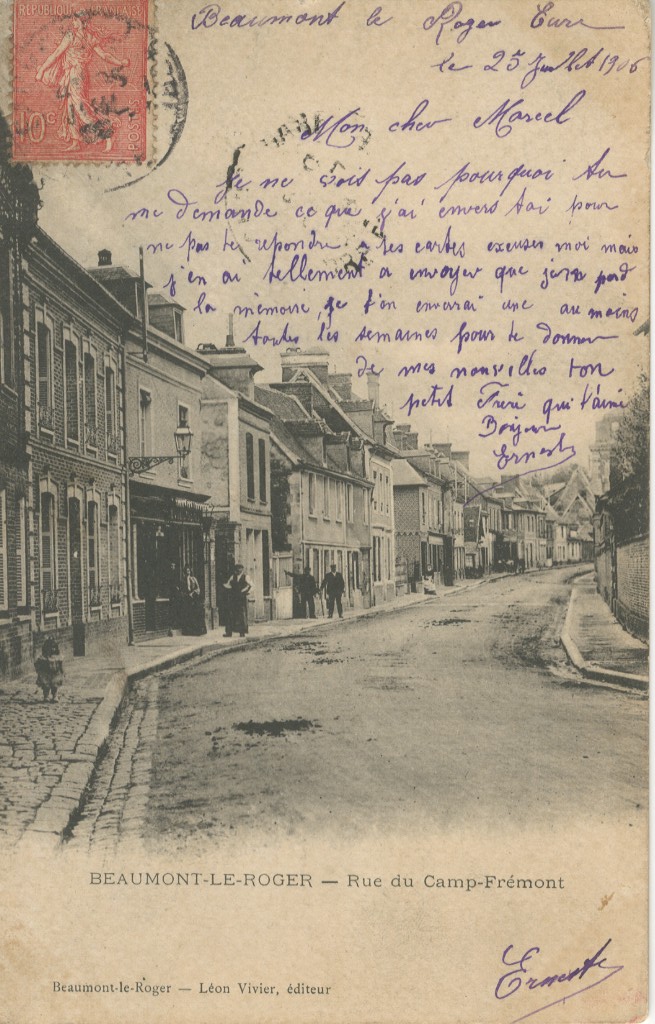 REPUBLIQUE FRANÇAISE
10c
POSTES
Beaumont le Roger Eure
le 25 Juillet 1906
Mon cher Marcel
Je ne vois pas pourquoi tu
me demande ce que j'ai envers toi pour
ne pas te repondre a tes cartes excuser moi mais
j'en ai tellement a envoyer que perd
la mèmoire, je t'en enverrai une au moins
toutes les semaines pour te donner
de mes nouvelles ton
petit Frere qui t'aime
Bonjour
Ernest
BEAUMONT-LE-ROGER — Rue du Camp-Frémont
Beaumont-le-Roger — Léon Vivier, éditeur
Erneste